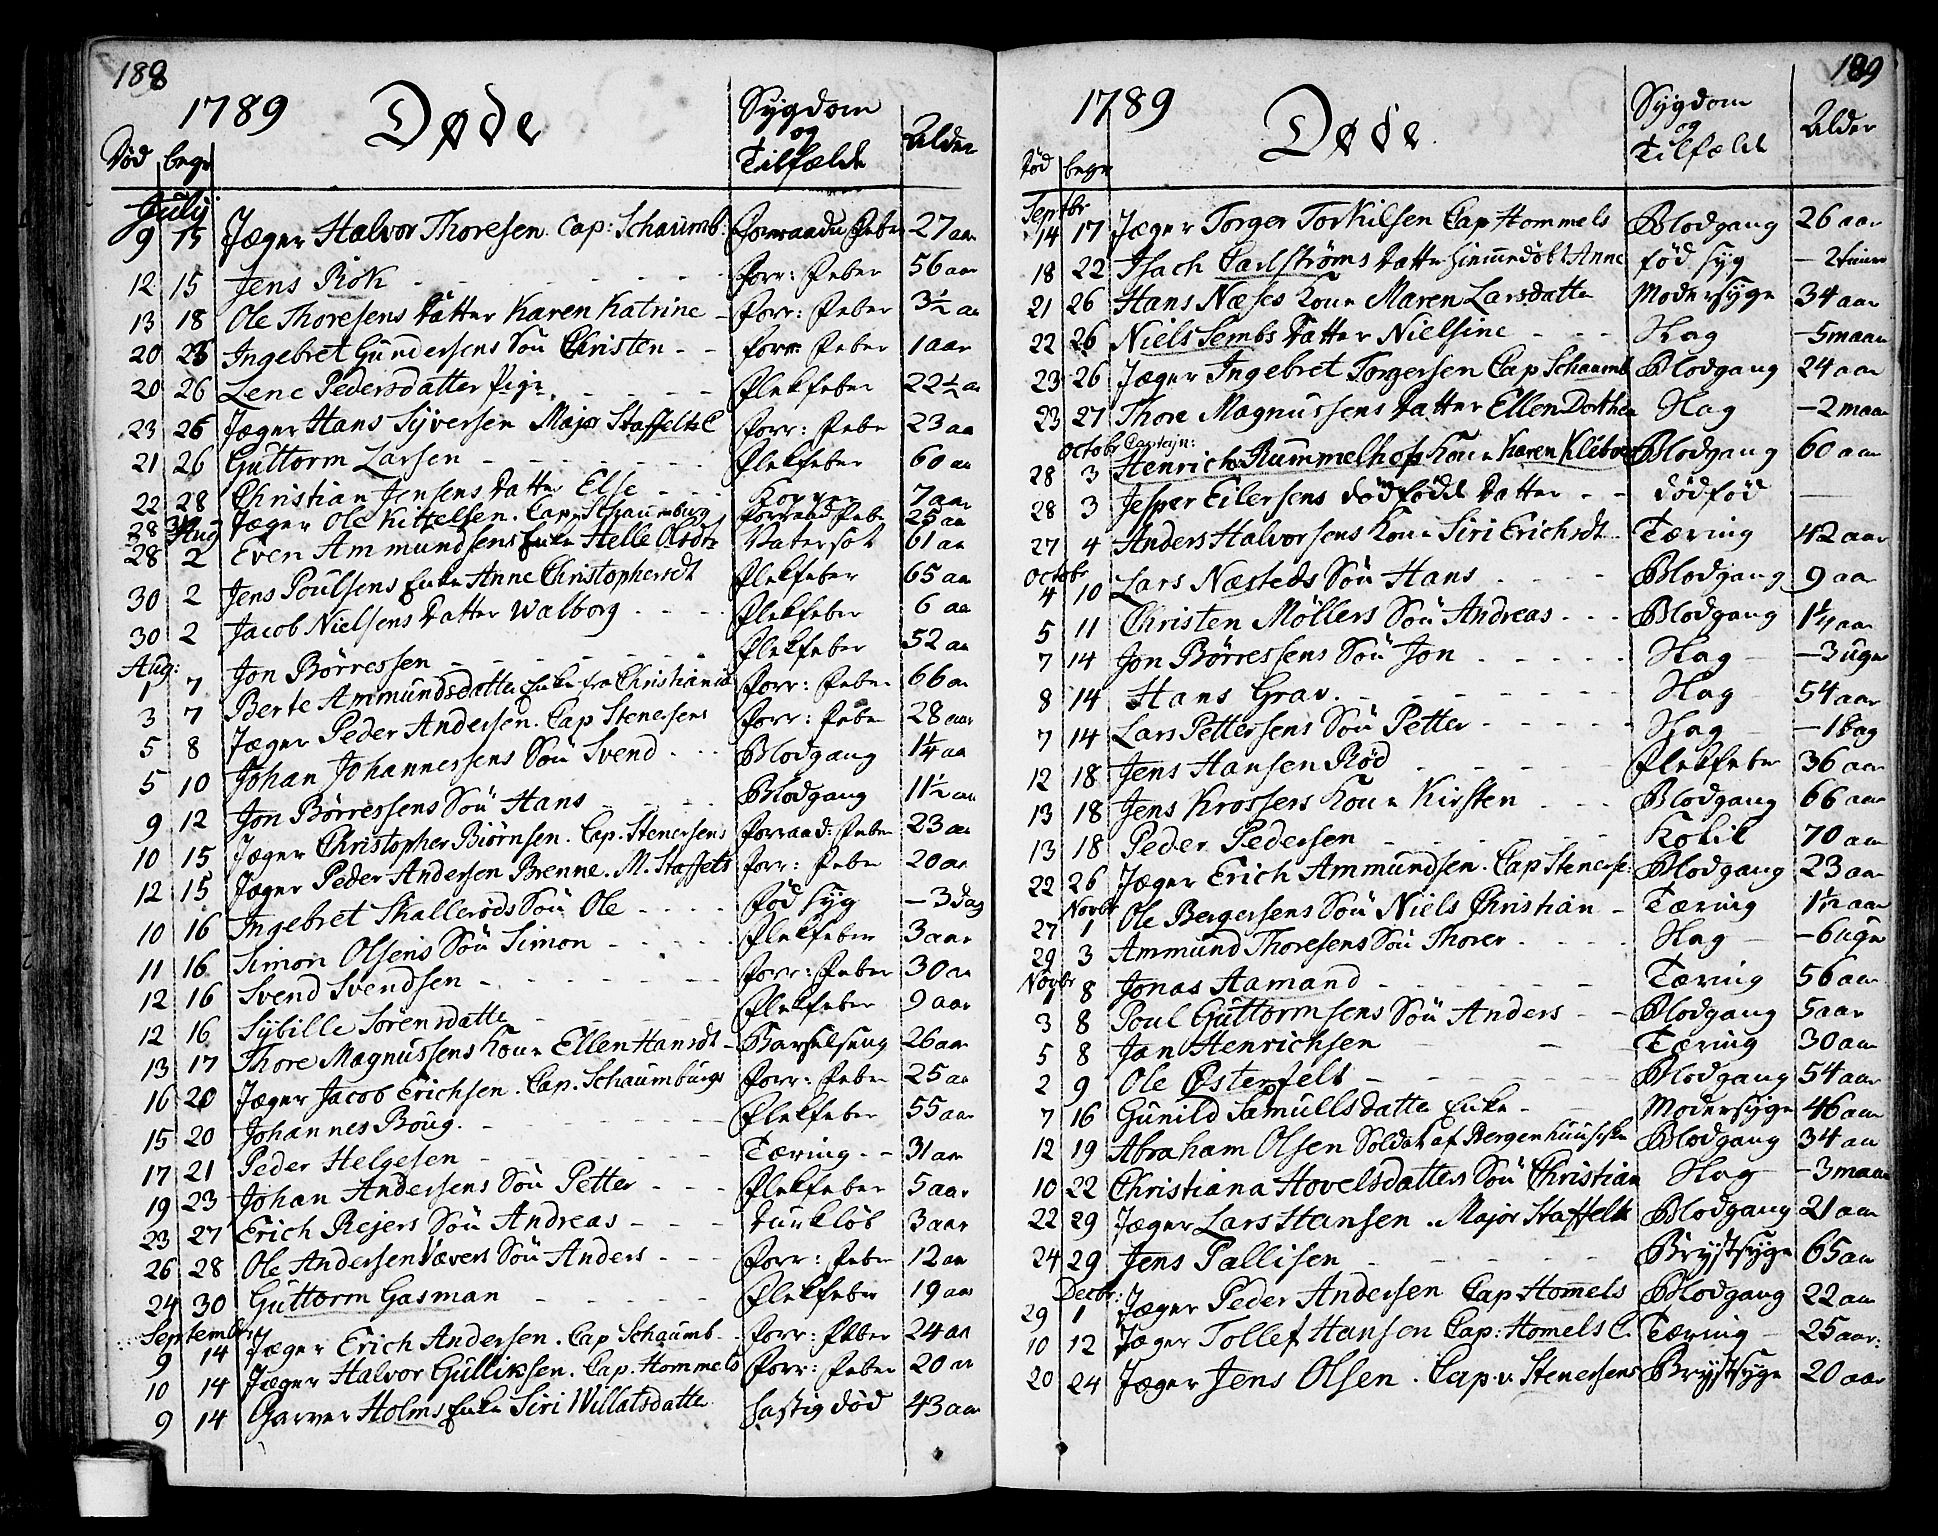 188
1789 Døde Sygdom og Tilfælde Alder
Død begr
July
9 15 Jæger Halvor Thoresen. Cap: Schaumb: Forraadn Feber 27 aar
12 15 Jens Bök - - - Forr: Feber 56 aar
13 18 Ole Thoresens Datter Karen Katrine - Forr: Feber 3½ aar
20 26 Ingebret Gundersens Sön Christen - - Forr Feber 1 aar
20 26 Lene Pedersdatter Pige - - - Flekfeber 22½ aar
23 26 Jæger Hans Syversen Major Staffeldts C Forr: Feber 23 aar
21 26 Guttorm Larsen - - - Flekfeber 60 aar
22 28 Christian Jensens Datter Else - - - Kopper 7 aar
28 Aug Jæger Ole Kittelsen. Cap. Schaumburg Forraad Feber 25 aar
28 2 Even Ammundsens Enke Helle Olsdt Vatersot 61 aar
30 2 Jens Poulsens Enke Anne Christophersdt Flekfeber 65 aar
30 2 Jacob Nielsens Datter Walborg - - - Flekfeber 6 aar
Aug:
1 7 Jon Börressen - - - Flekfeber 52 aar
3 7 Berte Ammundsdatter Enke fra Christiania Forr: Feber 66 aar
5 8 Jæger Peder Andersen. Cap Stenersens Forr: Feber 28 aar
5 10 Johan Johannessens Sön Svend - - - Blodgang 1¼ aar
9 12 Jon Börressens Sön Hans - - - Blodgang 11½ aar
10 15 Jæger Christopher Biörnsen. Cap. Stenersens Forraad: Feber 23 aar
12 15 Jæger Peder Andersen Brenne. M. Staffelts Forr: Feber 20 aar
10 16 Ingebret Skallerøds Sön Ole - - - Fød syg - 3 dag
11 16 Simon Olsens Sön Simon - - - Flekfeber 3 aar
12 16 Svend Svendsen - - - Forr: Feber 30 aar
12 16 Sybille Sörensdatter - - - Flekfeber 9 aar
13 17 Thore Magnussens Kone Ellen Hansdt - Barselseng 26 aar
16 20 Jæger Jacob Erichsen. Cap. Schaumburgs Forr: Feber 25 aar
15 20 Johannes Boug. - - - Flekfeber 55 aar
17 21 Peder Helgesen - - - Tæring - - 31 aar
19 23 Johan Andersens Sön Petter - - - Flekfeber 5 aar
23 27 Erich Rejers Sön Andreas - - - Durkløb 3 aar
26 28 Ole Andersen Vævers Sön Anders - - - Forr: Feber 12 aar
24 30 Guttorm Gasman - - - Flekfeber 19 aar
September
9 14 Jæger Erich Andersen. Cap Schaumb. - Forr: Feber 24 aar
10 14 Jæger Halvor Gulliksen. Cap. Hommels Forr: Feber 20 aar
9 14 Garver Holms Enke Siri Willatsdatter hastig død 43 aar
189
1789 Døde. Sygdom og Tilfælde Alder
Død begr
Septbr
14 17 Jæger Torger Torkilsen Cap Hommels Blodgang 26 aar
18 22 Isach Carlströms Datter hiemmedøbt Anne fød syg - 2 timer
21 26 Hans Næses Kone Maren Larsdatter Modersyge 34 aar
22 26 Niels Sembs Datter Nielsine - - - Slag - 5 maan
23 26 Jæger Ingebret Torgersen Cap Schaumb Blodgang 24 aar
23 27 Thore Magnussens Datter Ellen Dorthea Slag - 2 maan
Octobr Captejn:
28 3 Henrich Rummelhofs Kone Karen Kleboe Blodgang 60 aar
28 3 Jesper Eilersens dødfødde Datter - - dødfød -
27 4 Anders Halvorsens Kone Siri Erichsdt. Tæring 42 aar
Octobr
4 10 Lars Næsteds Sön Hans - - - Blodgang 9 aar
5 11 Christen Möllers Sön Andreas - - - Blodgang 1¼ aar
7 14 Jon Börressens Sön Jon - - - Slag - - 3 uger
8 14 Hans Grav. - - - Slag - 54 aar
7 14 Lars Pettersens Sön Petter - - - Slag - - 1 dag
12 18 Jens Hansen Rød - - - Flekfeber 36 aar
13 18 Jens Krossers Kone Kirsten - - - Blodgang 66 aar
13 18 Peder Pedersen - - - Kolik 70 aar
22 26 Jæger Erich Ammundsen. Cap Stenerse: Blodgang 23 aar
Novbr
27 1 Ole Bergersens Sön Niels Christian - Tæring 1½ aar
29 3 Ammund Thoresens Sön Thorer - - - Slag - - 6 uger
Novbr
1 8 Jonas Aamand - - - Tæring 56 aar
3 8 Poul Guttormsens Sön Anders - - Blodgang 5 aar
5 8 Jan Henrichsen - - Tæring 30 aar
2 9 Ole Østerfelt - - - Blodgang 54 aar
7 16 Gunild Samuelsdatter Enke - - Modersyge 46 aar
12 19 Abraham Olsen Soldat af Bergenhuusiske Blodgang 34 aar
10 22 Christiana Hovelsdatters Sön Christian Slag - - 3 maan
22 29 Jæger Lars Hansen. Major Staffelts Blodgang 21 aar
24 29 Jens Pallisen - - - Brystsyge 65 aar
Decbr:
29 1 Jæger Peder Andersen Cap Homels Blodgang 22 aar
10 12 Jæger Tollef Hansen Cap: Homels C. Tæring - 25 aar:
20 24 Jæger Jens Olsen. Cap. v Stenersens Brystsyge 20 aar